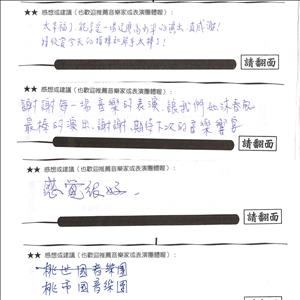 ★★ 感想或建議(也歡迎推薦音樂家或表演團體喔):
太幸福了,能享受一場這麼高水準的演出,真感謝!
請翻面
★★ 感想或建議(也歡迎推薦音樂家或表演團體喔):
謝謝每一場音樂的表演、讓我們如沐春風
最棒的演出、謝謝、期待下次的音樂饗宴
請翻面
★★ 感想或建議(也歡迎推薦音樂家或表演團體喔):
感覺很好.
請翻面
★★ 感想或建議(也歡迎推薦音樂家或表演團體喔):
桃世國音樂團
桃市國音樂團